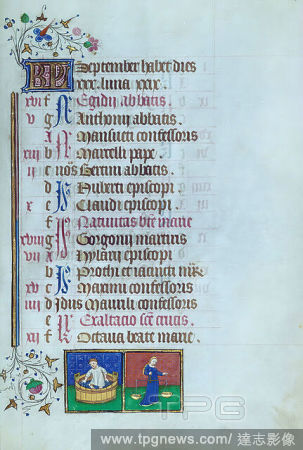 KL September habet dies
xxx. luna xxx.
xvi f N Egidii abbatis.
v g Anthonii abbatis.
A N Mansueti confessoris
xiii b N Marcelli pape.
ii c nōs Bertini abbatis.
d Huberti episcopi
x e Claudi episcopi.
f Natiuitas bt̄e marie
xviii g Gorgonii martiris
vii A Hylarii episcopi
b Prothi et iacincti
xv c Maximi confessoris
iiii d Idus Maurilii confessoris
e Exaltacio sc̄e crucis.
xii f Octaua beate marie.
TPG
www.tpgnews.com/達志影像